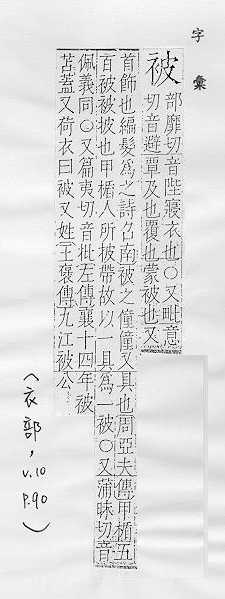 字彙
被 部靡切音陛寢衣也〇又毗意
切音避覃及也覆也蒙被也又
首飾也編髮爲之詩召南被之僮僮又具也周亞夫傳甲楯五
百被被披也甲楯人所披帶故以一具爲一被〇又蒲昧切音
佩義同〇又篇夷切音批左傳襄十四年被
苫蓋又荷衣曰被又姓王襃傳九江被公
(衣部,
v.10
P.90)